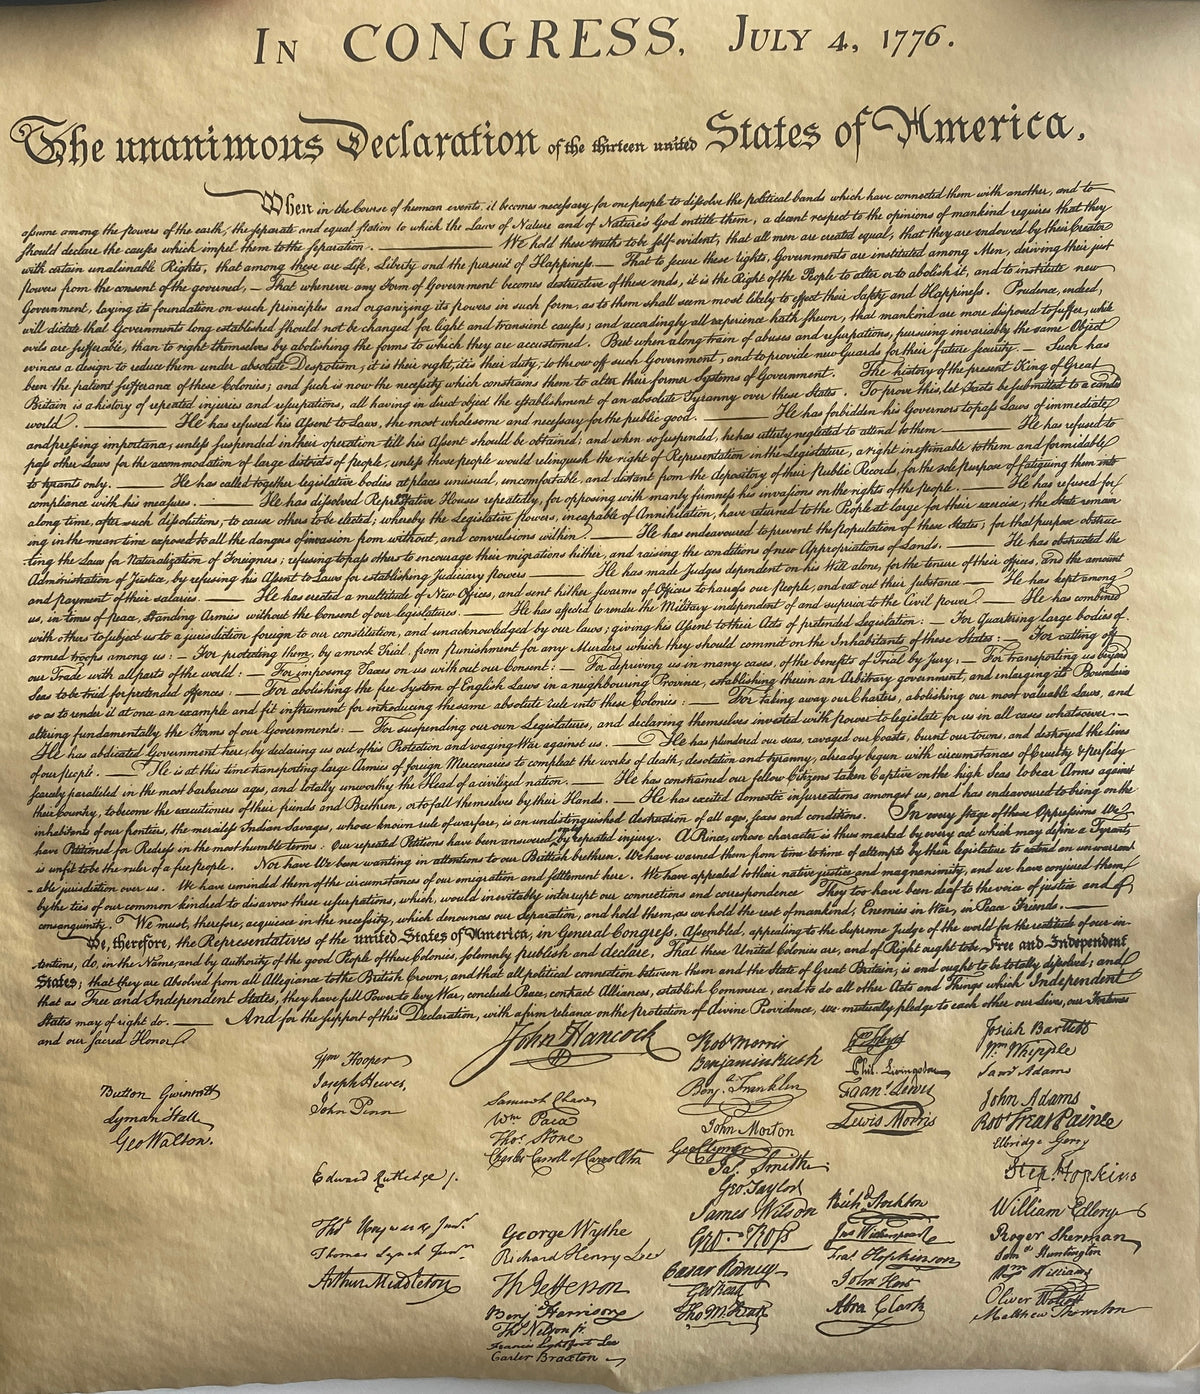 In CONGRESS, July 4, 1776.
The unanimous Declaration of the thirteen united States of America,
When in the Course of human events, it becomes necessary for one people to dissolve the political bands which have connected them with another, and to
assume among the powers of the earth, the separate and equal station to which the Laws of Nature and of Nature's God entitle them, a decent respect to the opinions of mankind requires that they
should declare the causes which impel them to the separation. — We hold these truths to be self-evident, that all men are created equal, that they are endowed by their Creator
with certain unalienable Rights, that among these are Life, Liberty and the pursuit of Happiness. — That to secure these rights, Governments are instituted among Men, deriving their just
powers from the consent of the governed, — That whenever any Form of Government becomes destructive of these ends, it is the Right of the People to alter or to abolish it, and to institute new
Government, laying its foundation on such principles and organizing its powers in such form, as to them shall seem most likely to effect their Safety and Happiness. Prudence, indeed,
will dictate that Governments long established should not be changed for light and transient causes; and accordingly all experience hath shewn, that mankind are more disposed to suffer, while
evils are sufferable, than to right themselves by abolishing the forms to which they are accustomed. But when a long train of abuses and usurpations, pursuing invariably the same Object
evinces a design to reduce them under absolute Despotism, it is their right, it is their duty, to throw off such Government, and to provide new Guards for their future security. — Such has
been the patient sufferance of these Colonies; and such is now the necessity which constrains them to alter their former Systems of Government. The history of the present King of Great
Britain is a history of repeated injuries and usurpations, all having in direct object the establishment of an absolute Tyranny over these States. To prove this, let Facts be submitted to a candid
world. — He has refused his Assent to Laws, the most wholesome and necessary for the public good. — He has forbidden his Governors to pass Laws of immediate
and pressing importance, unless suspended in their operation till his Assent should be obtained; and when so suspended, he has utterly neglected to attend to them. — He has refused to
pass other Laws for the accommodation of large districts of people, unless those people would relinquish the right of Representation in the Legislature, a right inestimable to them and formidable
to tyrants only. — He has called together legislative bodies at places unusual, uncomfortable, and distant from the depository of their Public Records, for the sole purpose of fatiguing them into
compliance with his measures. — He has dissolved Representative Houses repeatedly, for opposing with manly firmness his invasions on the rights of the people. — He has refused for
a long time, after such dissolutions, to cause others to be elected; whereby the Legislative powers, incapable of Annihilation, have returned to the People at large for their exercise; the State remain
ing in the mean time exposed to all the dangers of invasion from without, and convulsions within. — He has endeavoured to prevent the population of these States; for that purpose obstruc
ting the Laws for Naturalization of Foreigners; refusing to pass others to encourage their migrations hither, and raising the conditions of new Appropriations of Lands. — He has obstructed the
Administration of Justice, by refusing his Assent to Laws for establishing Judiciary powers — He has made Judges dependent on his Will alone, for the tenure of their offices, and the amount
and payment of their salaries. — He has erected a multitude of New Offices, and sent hither swarms of Officers to harrass our People, and eat out their substance — He has kept among
us, in times of peace, Standing Armies without the Consent of our legislatures. — He has affected to render the Military independent of and superior to the Civil power. — He has combined
with others to subject us to a jurisdiction foreign to our constitution, and unacknowledged by our laws; giving his Assent to their Acts of pretended Legislation: — For Quartering large bodies of
armed troops among us: — For protecting them, by a mock Trial, from punishment for any Murders which they should commit on the Inhabitants of these States: — For cutting off
our Trade with all parts of the world: — For imposing Taxes on us without our Consent: — For depriving us in many cases, of the benefits of Trial by Jury; — For transporting us beyond
Seas to be tried for pretended offences: — For abolishing the free System of English Laws in a neighbouring Province, establishing therein an Arbitrary government, and enlarging its Boundaries
so as to render it at once an example and fit instrument for introducing the same absolute rule into these Colonies: — For taking away our Charters, abolishing our most valuable Laws, and
altering fundamentally the Forms of our Governments: — For suspending our own Legislatures, and declaring themselves invested with power to legislate for us in all cases whatsoever. —
He has abdicated Government here, by declaring us out of his Protection and waging War against us. — He has plundered our seas, ravaged our Coasts, burnt our towns, and destroyed the lives
of our people. — He is at this time transporting large Armies of foreign Mercenaries to compleat the works of death, desolation and tyranny, already begun with circumstances of Cruelty & perfidy
scarcely paralleled in the most barbarous ages, and totally unworthy the Head of a civilized nation. — He has constrained our fellow Citizens taken Captive on the high Seas to bear Arms against
their Country, to become the executioners of their friends and Brethren, or to fall themselves by their Hands. — He has excited domestic insurrections amongst us, and has endeavoured to bring on the
inhabitants of our frontiers, the merciless Indian Savages, whose known rule of warfare, is an undistinguished destruction of all ages, sexes and conditions. In every stage of these Oppressions We
have Petitioned for Redress in the most humble terms: Our repeated Petitions have been answered only by repeated injury. A Prince, whose character is thus marked by every act which may define a Tyrant,
is unfit to be the ruler of a free people. Nor have We been wanting in attentions to our Brittish brethren. We have warned them from time to time of attempts by their legislature to extend an unwarrant
-able jurisdiction over us. We have reminded them of the circumstances of our emigration and settlement here. We have appealed to their native justice and magnanimity, and we have conjured them
by the ties of our common kindred to disavow these usurpations, which, would inevitably interrupt our connections and correspondence They too have been deaf to the voice of justice and of
consanguinity. We must, therefore, acquiesce in the necessity, which denounces our Separation, and hold them, as we hold the rest of mankind, Enemies in War, in Peace Friends. —
We, therefore, the Representatives of the united States of America, in General Congress, Assembled, appealing to the Supreme Judge of the world for the rectitude of our in-
tentions, do, in the Name, and by Authority of the good People of these Colonies, solemnly publish and declare, That these United Colonies are, and of Right ought to be Free and Independent
States; that they are Absolved from all Allegiance to the British Crown, and that all political connection between them and the State of Great Britain, is and ought to be totally dissolved; and
that as Free and Independent States, they have full Power to levy War, conclude Peace, contract Alliances, establish Commerce, and to do all other Acts and Things which Independent
States may of right do. — And for the support of this Declaration, with a firm reliance on the protection of divine Providence, we mutually pledge to each other our Lives, our Fortunes
and our sacred Honor.
Button Gwinnett
Lyman Hall
Geo Walton.
Wm Hooper
Joseph Hewes,
John Penn
Edward Rutledge /.
Thos Heyward Junr.
Thomas Lynch Junr.
Arthur Middleton
John Hancock
Samuel Chase
Wm Paca
Thos. Stone
Charles Carroll of Carrollton
George Wythe
Richard Henry Lee
Th Jefferson
Benj Harrison
Thos Nelson jr.
Francis Lightfoot Lee
Carter Braxton
Robt Morris
Benjamin Rush
Benj. Franklin
John Morton
Geo Clymer
Jas. Smith
Geo. Taylor
James Wilson
Geo. Ross
Caesar Rodney
Geo Read
Tho M:Kean
Wm Floyd
Phil. Livingston
Frans. Lewis
Lewis Morris
Richd. Stockton
Jno Witherspoon
Fras. Hopkinson
John Hart
Abra Clark
Josiah Bartlett
Wm Whipple
Saml Adams
John Adams
Robt Treat Paine
Elbridge Gerry
Step. Hopkins
William Ellery
Roger Sherman
Saml Huntington
Wm Williams
Oliver Wolcott
Matthew Thornton